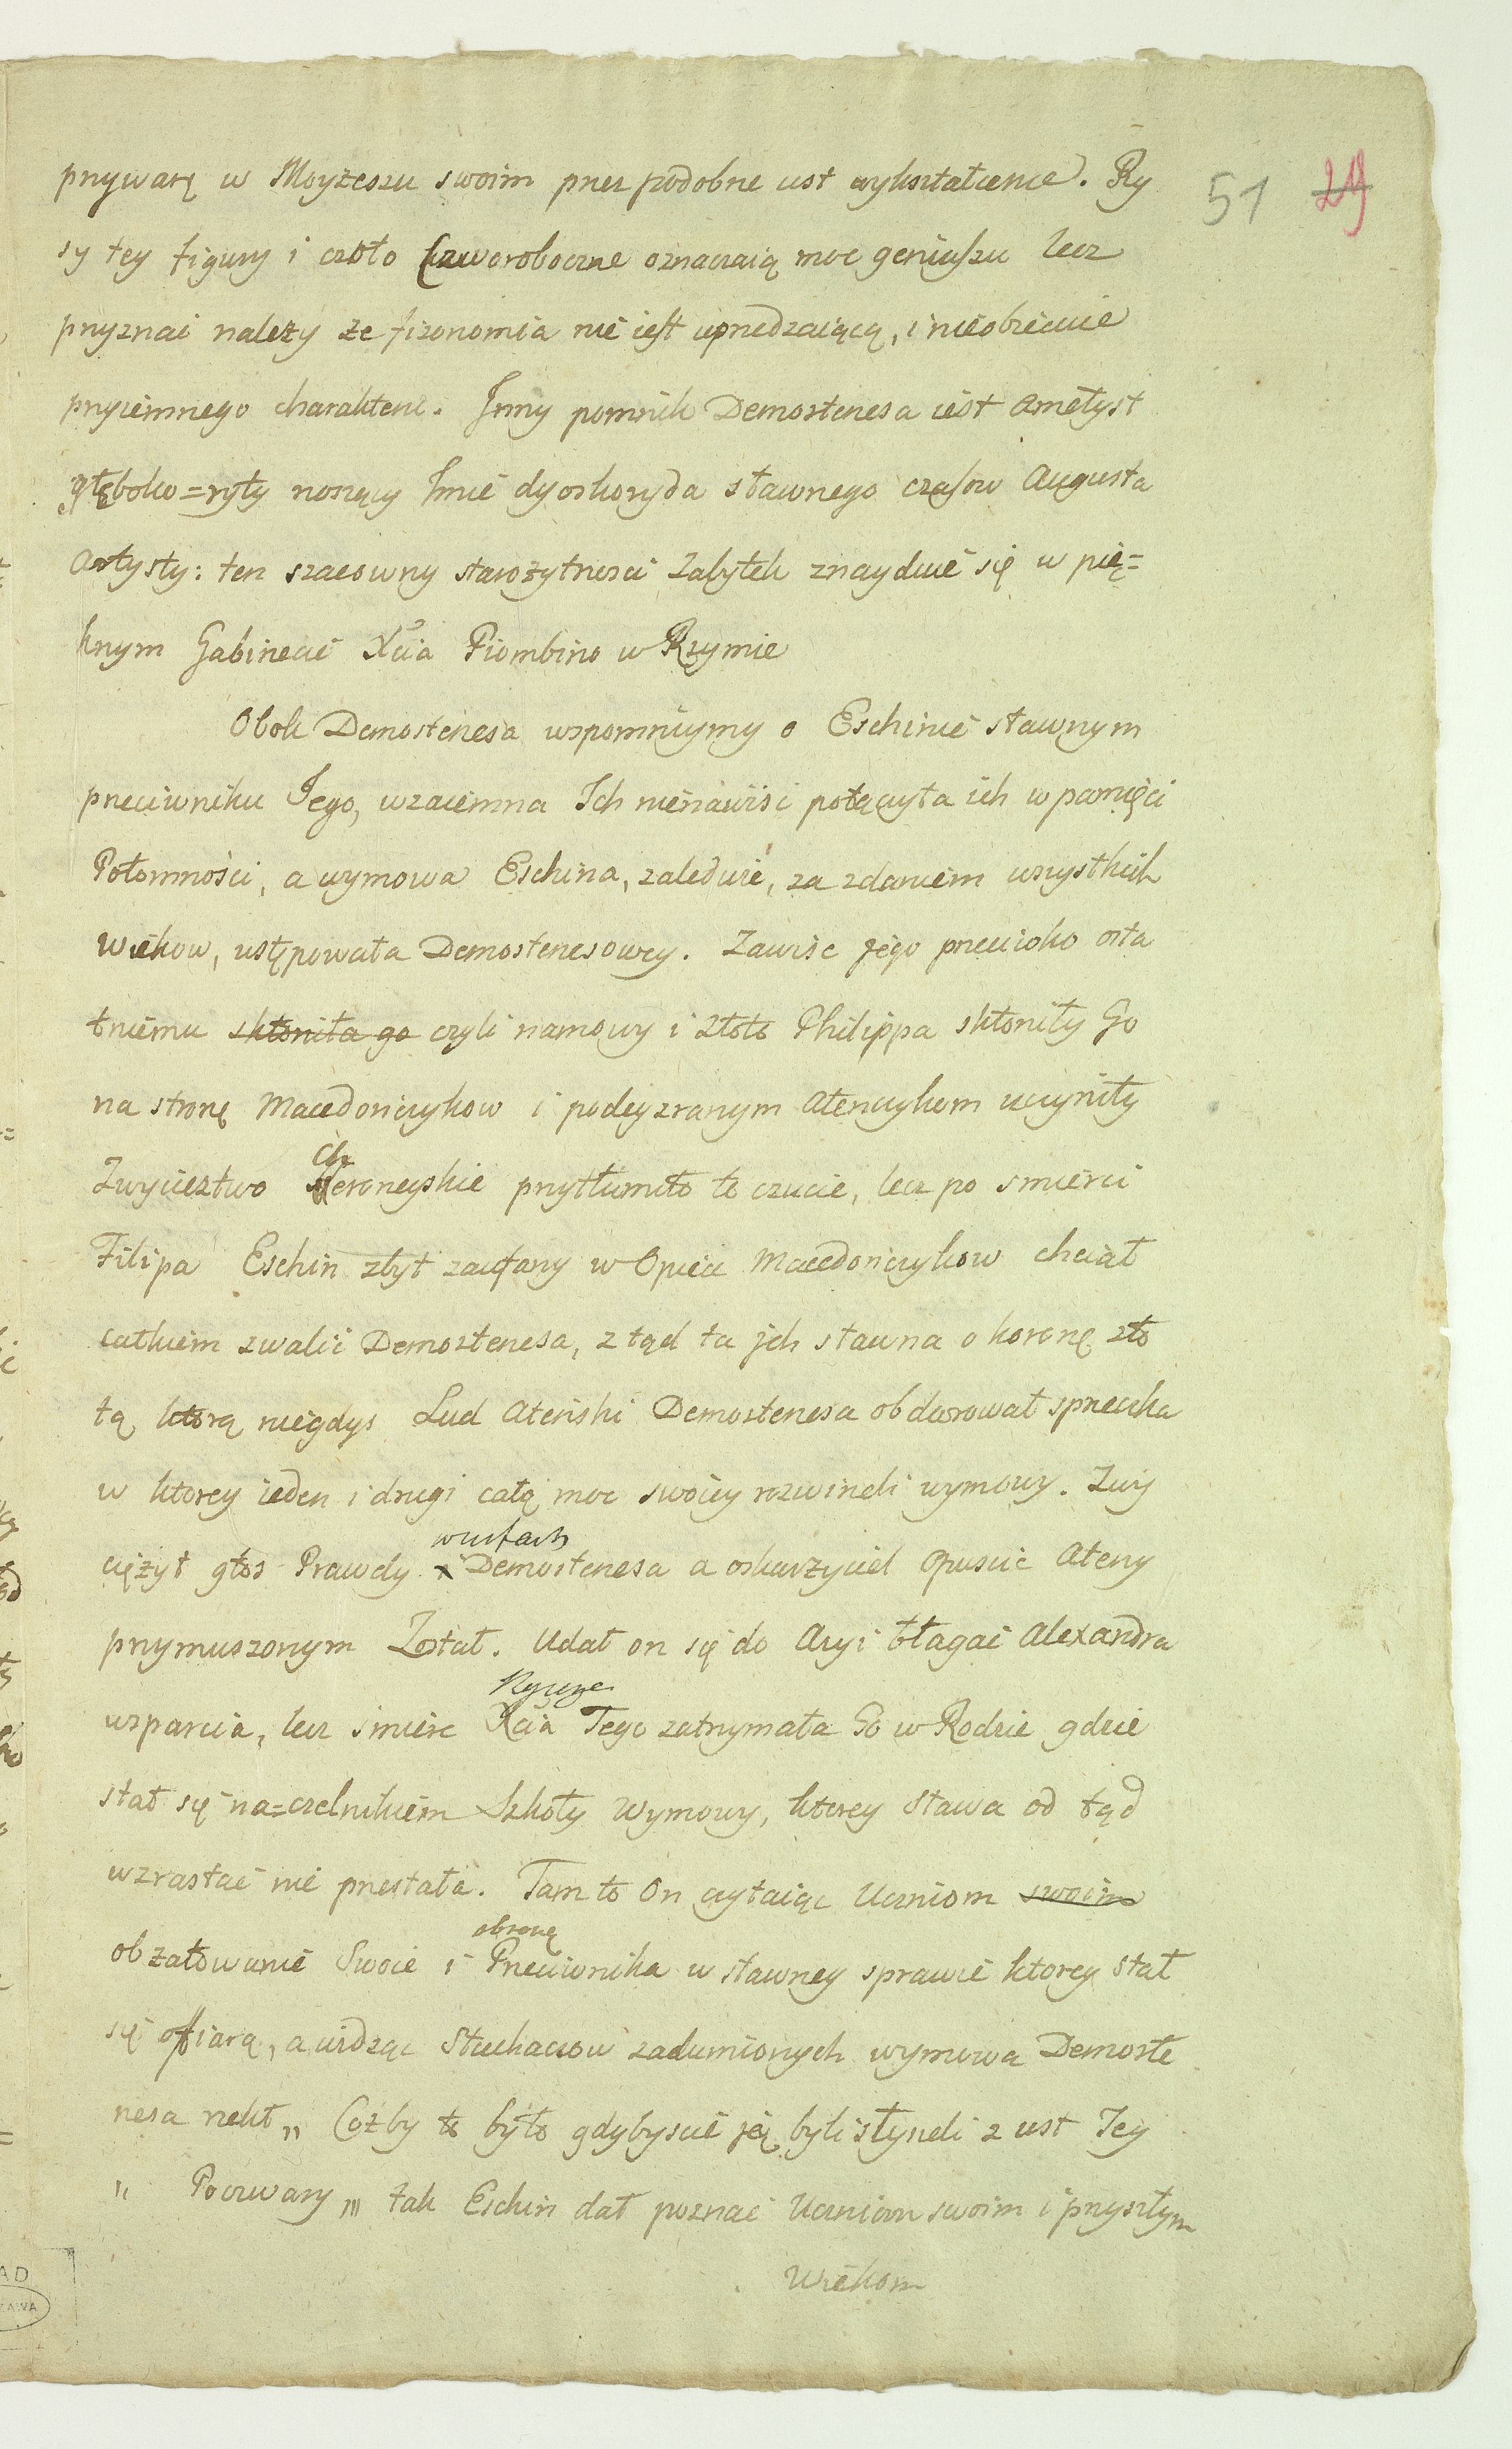 51 29
przywarę w Moyżeszu swoim przez podobne ust wykształcenie. Ry
sy tey figury i czoło czworoboczne oznaczaią moc geniuszu lecz
przyznać należy że fizonomia nie iest uprzedzaiącą, i nieobiecuie
przyiemnego charakteru. Inny pomnik Demostenesa iest Ametyst
głęboko=ryty noszący Imie dyoskoryda sławnego czasow Augusta
Artysty: ten szacowny starożytnosci Zabytek znayduie się w pię=
knym Gabinecie Xcia Piombino w Rzymie
Obok Demostenesa wspomniymy o Eschinie sławnym
przeciwniku Jego, wzaiemna Ich nienawiść połączyła ich w pamięci
Potomności, a wymowa Eschina, zaledwie, za zdaniem wszystkich
wiekow, ustępowała Demostenesowey. Zawisc jego przeciwko osta
tniemu skłoniła go czyli namowy i złoto Philippa skłoniły Go
na stronę Macedończykow i podeyzranym Atenczykom uczyniły
Ch
Zwycieztwo eroneyskie przytłumiło to czucie, lecz po smierci
Filipa Eschin zbyt zaufany w Opiece Macedończykow chciał
całkiem zwalić Demostenesa, z tąd ta jch sławna o koronę zło
tą ktorą niegdys Lud Ateński Demostenesa obdarował sprzeczka
w ktorey ieden i drugi całą moc swoiey rozwineli wymowy. Zwy
w ustach
ciężył głos Prawdy Demostenesa a oskarzyciel Opuscic Ateny
przymuszonym Został. Udał on się do Azyi błagać Alexandra
wsparcia, lecz smierc Xcia Tego zatrzymała Go w Rodzie gdzie
stał się na=czelnikiem Szkoły Wymowy, ktorey Sława od tąd
wzrastać nie przestała. Tam to On czytaiąc Uczniom swoim
obronę
obżałowanie Swoie i Przeciwnika w sławney sprawie ktorey stał
się offiarą, a widząc Słuchaczow zadumionych wymową Demoste
nesa rzekł „ Cożby to było gdybyscie ją byli słyszeli z ust Tey
„ Poczwary „ tak Eschin dał poznać Uczniom swoim i przyszłym
Wiekom